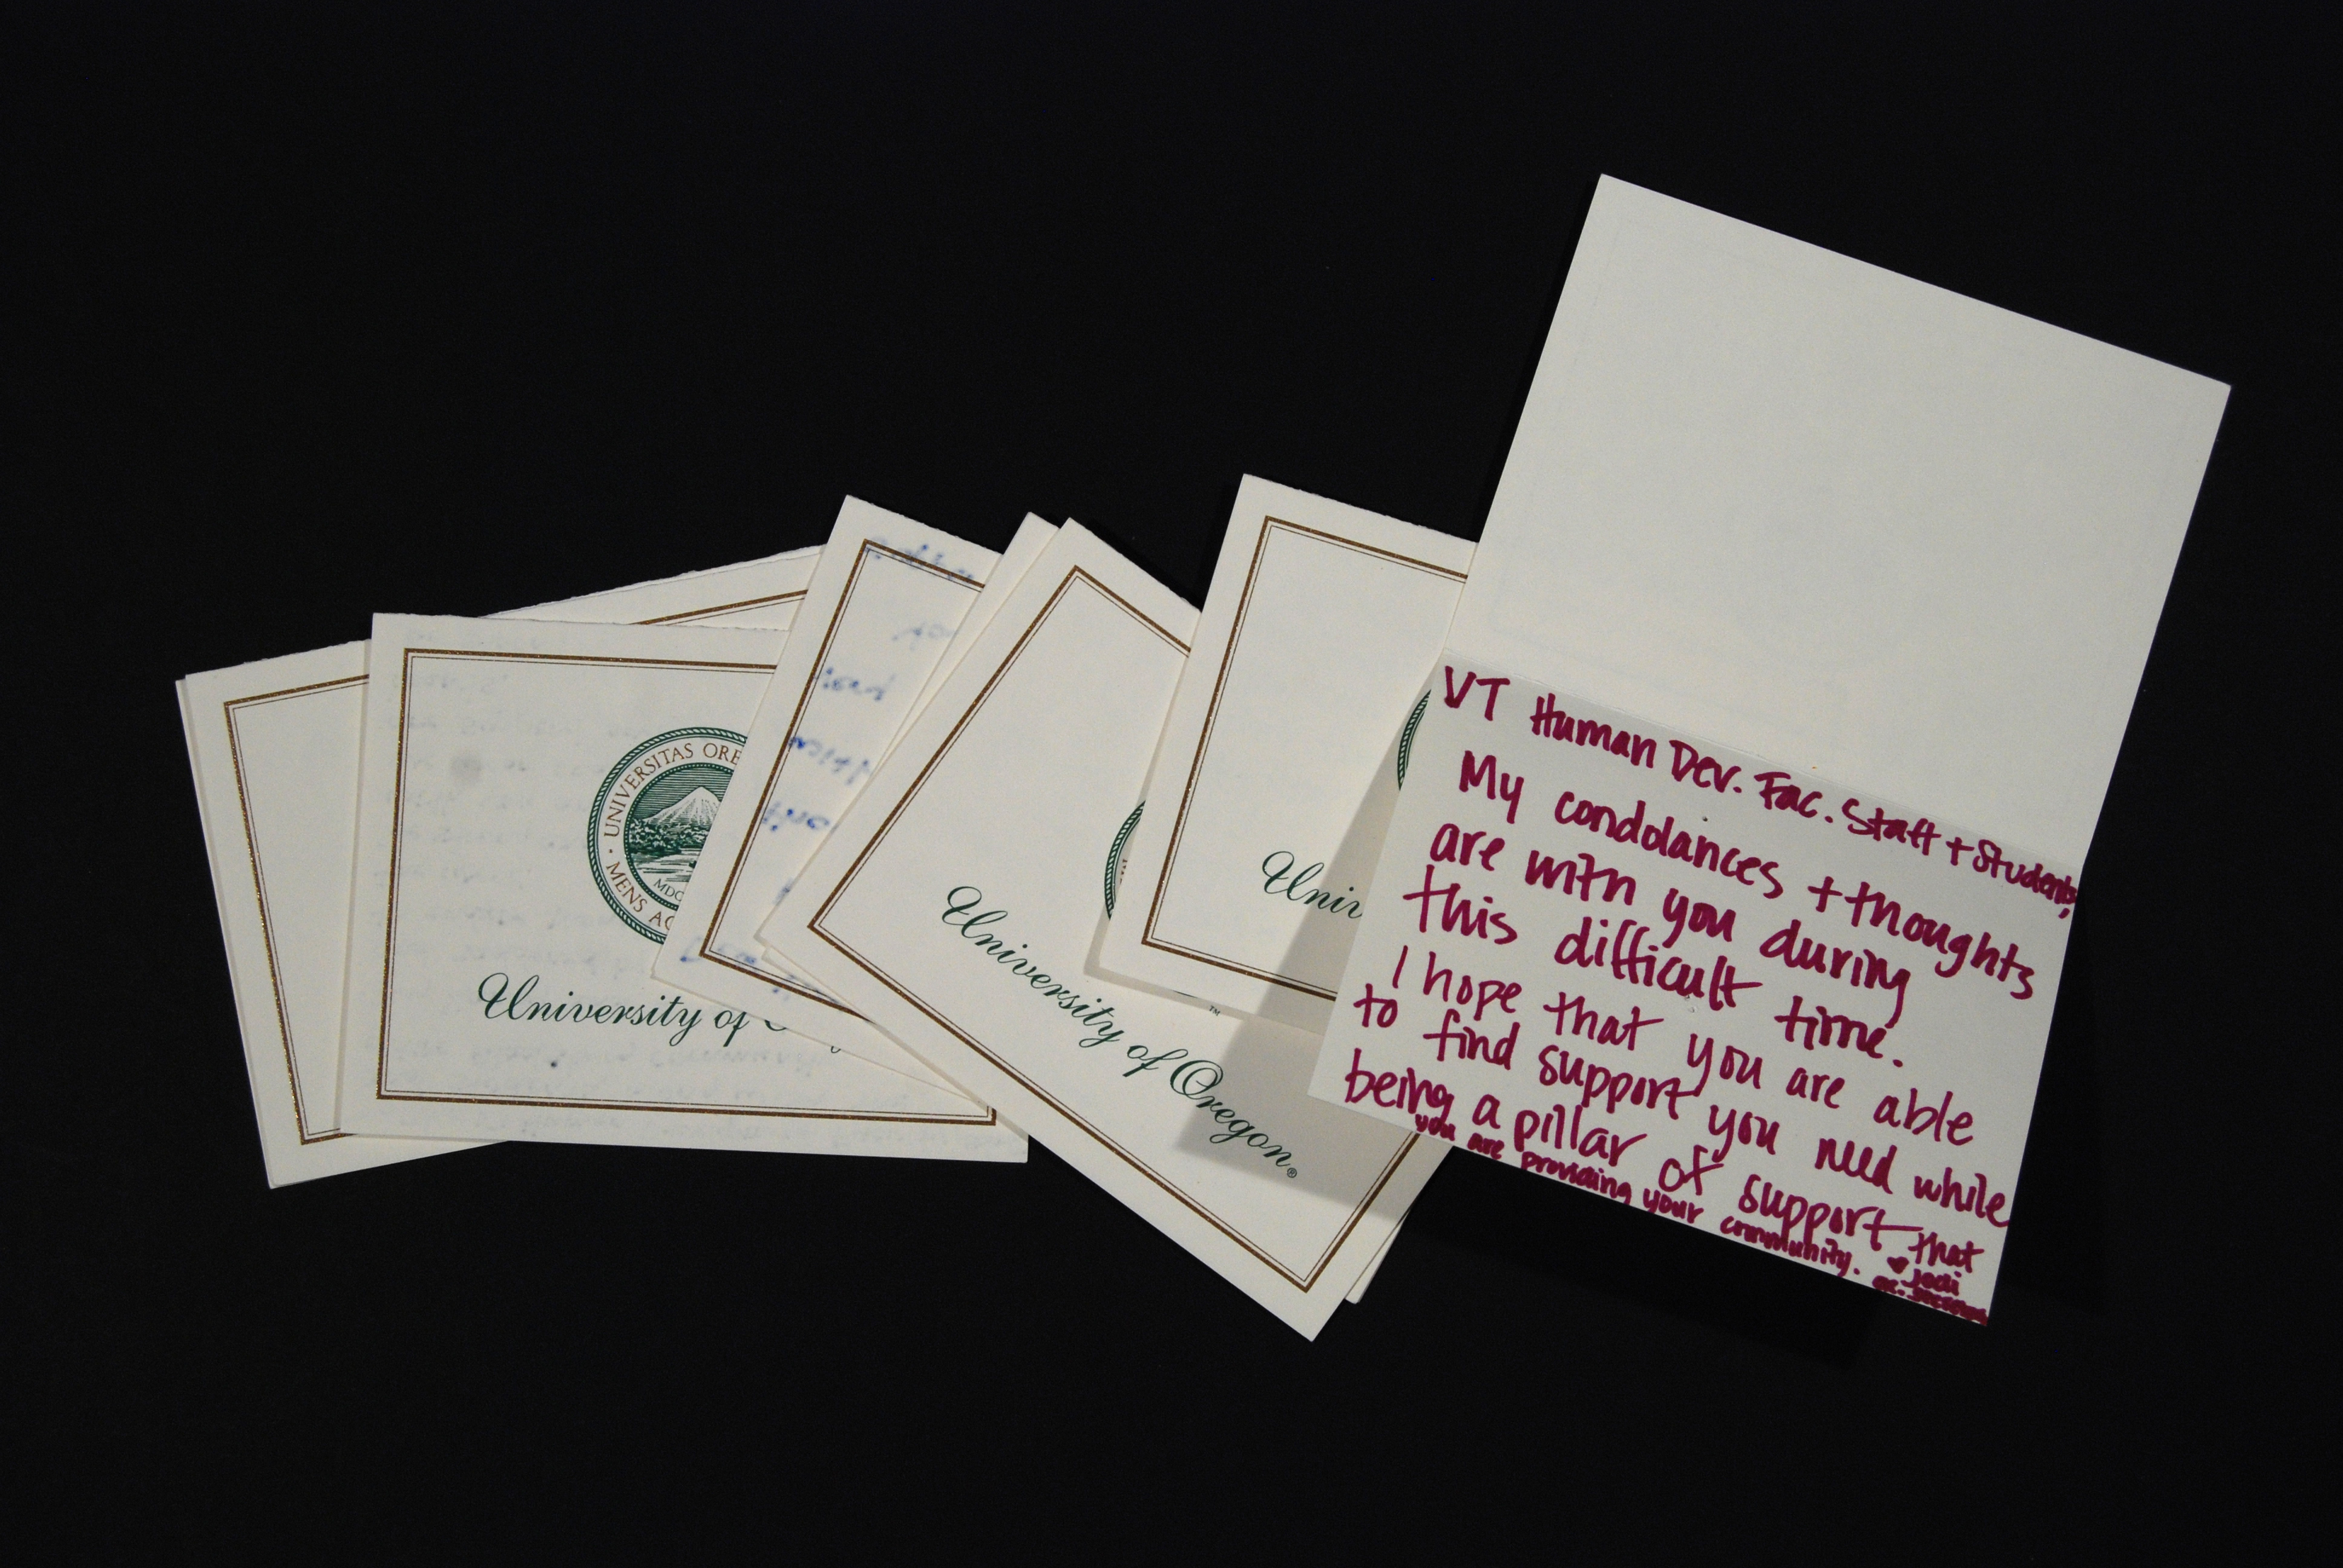 UNIVERSITAS ORE
MENS AG
MDC
University of
University of Oregon®
™
Univ
VT Human Dev. Fac. Staff + Students,
My condolances + thoughts
are with you during
this difficult time.
I hope that you are able
to find support you need while
being a pillar of support that
you are providing your community.
♥ Jodi